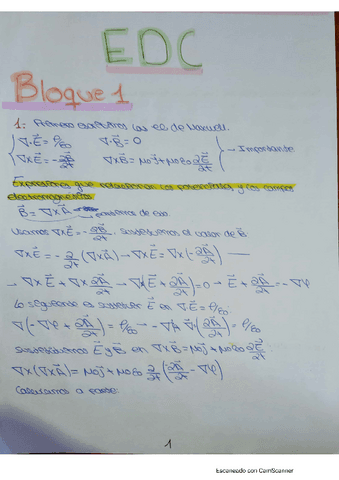 EDC
Bloque 1
1: Primero escribimos las ec. de Maxwell.
∇·E⃗ = ρ/ε0    ∇·B⃗ = 0
∇×E⃗ = -∂B⃗/∂t    ∇×B⃗ = μ0j⃗ + μ0ε0 ∂E⃗/∂t → Importante
Expresiones que relacionan los potenciales y los campos
electromagnéticos
B⃗ = ∇×A⃗ de eso.
Usamos ∇×E⃗ = -∂B⃗/∂t, sustituimos el valor de B⃗
∇×E⃗ = -∂/∂t (∇×A⃗) → ∇×E⃗ = ∇×(-∂A⃗/∂t) →
→ ∇×E⃗ + ∇×∂A⃗/∂t → ∇×(E⃗ + ∂A⃗/∂t) = 0 → E⃗ + ∂A⃗/∂t = -∇φ
Lo siguiente es sustituir E⃗ en ∇·E⃗ = ρ/ε0
∇(-∇φ + ∂A⃗/∂t) = ρ/ε0 →
Sustituimos E⃗ y B⃗ en ∇×B⃗ = μ0j⃗ + μ0ε0 ∂E⃗/∂t
∇×(∇×A⃗) = μ0j⃗ + μ0ε0 ∂/∂t (∂A⃗/∂t - ∇φ)
Calculamos a parte:
1
Escaneado con CamScanner